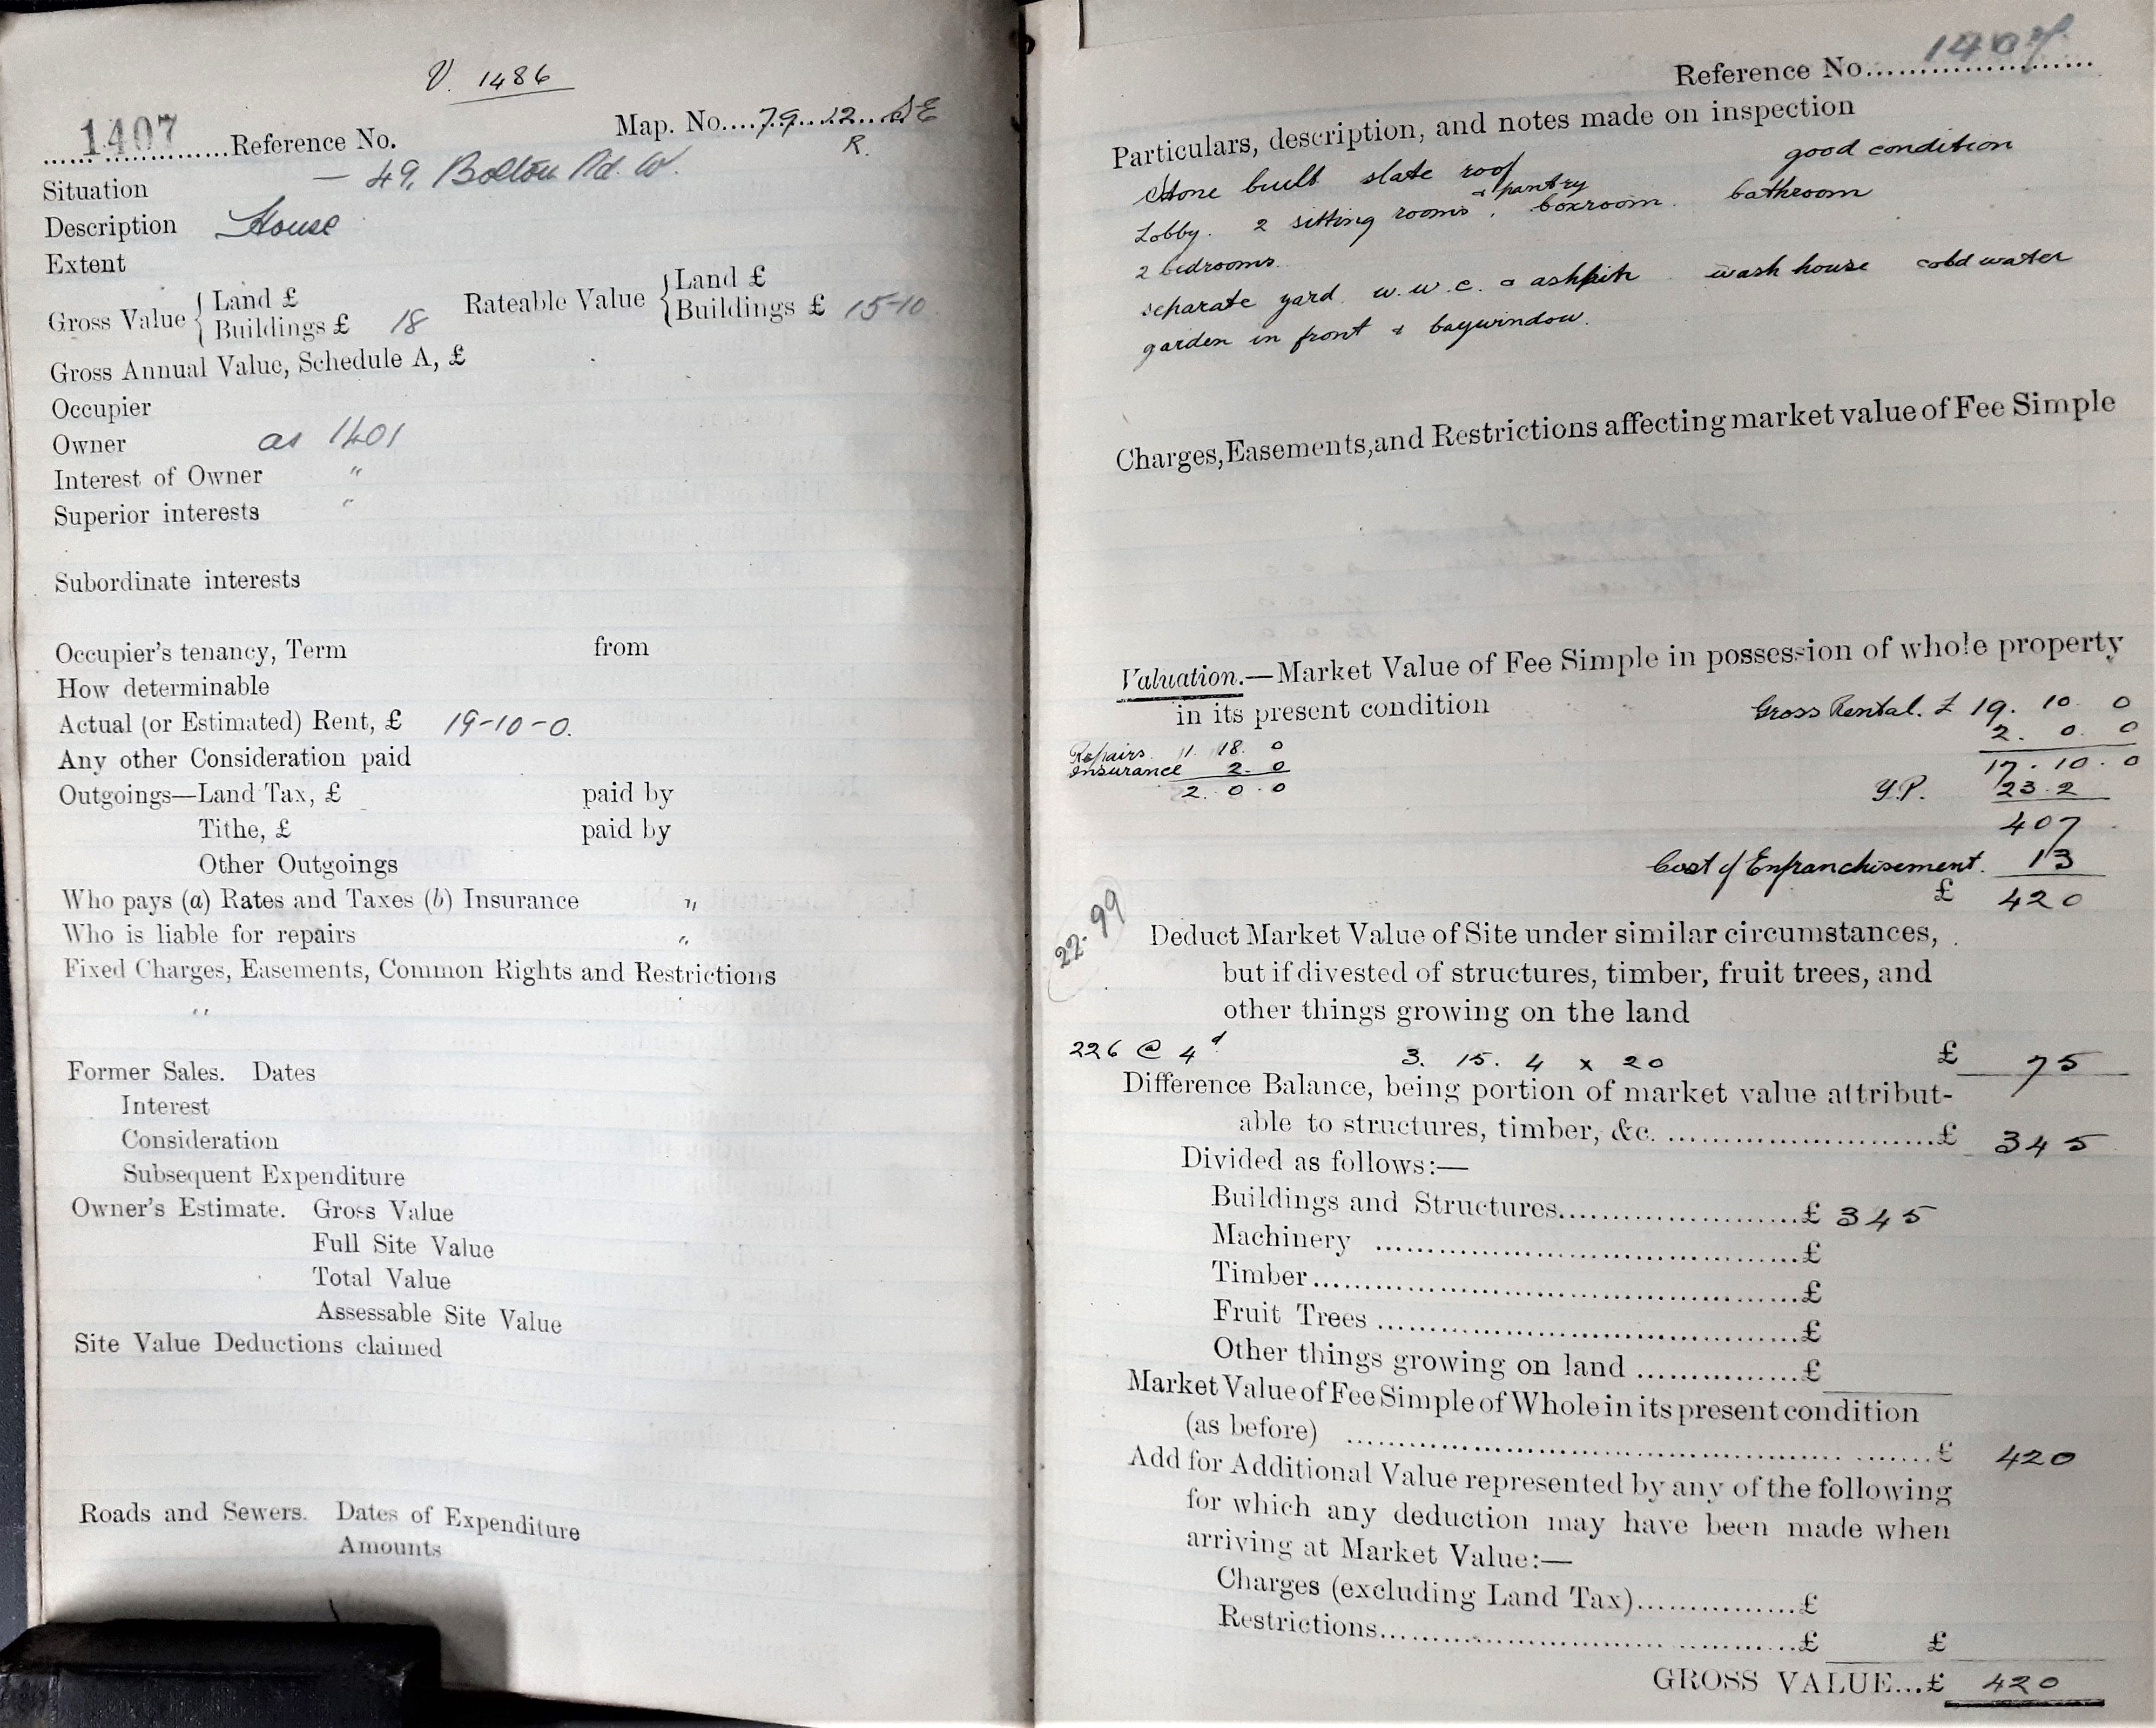 V. 1486
1407 Reference No. Map. No. 79. 12. SE
R.
Situation — 49, Bolton Rd. W.
Description House
Extent
Gross Value { Land £
Buildings £ 18
Rateable Value { Land £
Buildings £ 15-10
Gross Annual Value, Schedule A, £
Occupier
Owner as 1401
Interest of Owner "
Superior interests "
Subordinate interests
Occupier's tenancy, Term from
How determinable
Actual (or Estimated) Rent, £ 19-10-0.
Any other Consideration paid
Outgoings—Land Tax, £ paid by
Tithe, £ paid by
Other Outgoings
Who pays (a) Rates and Taxes (b) Insurance "
Who is liable for repairs "
Fixed Charges, Easements, Common Rights and Restrictions
"
Former Sales. Dates
Interest
Consideration
Subsequent Expenditure
Owner's Estimate. Gross Value
Full Site Value
Total Value
Assessable Site Value
Site Value Deductions claimed
Roads and Sewers. Dates of Expenditure
Amounts
Reference No. 1407
Particulars, description, and notes made on inspection
Stone built slate roof good condition
Lobby. 2 sitting rooms + pantry. boxroom. bathroom
2 bedrooms
separate yard w.w.c. & ashpit wash house cold water
garden in front & baywindow.
Charges, Easements, and Restrictions affecting market value of Fee Simple
Valuation.—Market Value of Fee Simple in possession of whole property
in its present condition
Gross Rental. £ 19. 10. 0
2. 0. 0
Repairs 1. 18. 0
Insurance 2. 0
2. 0. 0
17. 10. 0
Y.P. 23.2
407
Cost of Enfranchisement. 13
£ 420
22.99
Deduct Market Value of Site under similar circumstances,
but if divested of structures, timber, fruit trees, and
other things growing on the land
226 @ 4d 3. 15. 4 x 20 £ 75
Difference Balance, being portion of market value attribut-
able to structures, timber, &c. £ 345
Divided as follows:—
Buildings and Structures £ 345
Machinery £
Timber £
Fruit Trees £
Other things growing on land £
Market Value of Fee Simple of Whole in its present condition
(as before) £ 420
Add for Additional Value represented by any of the following
for which any deduction may have been made when
arriving at Market Value:—
Charges (excluding Land Tax) £
Restrictions £ £
GROSS VALUE...£ 420